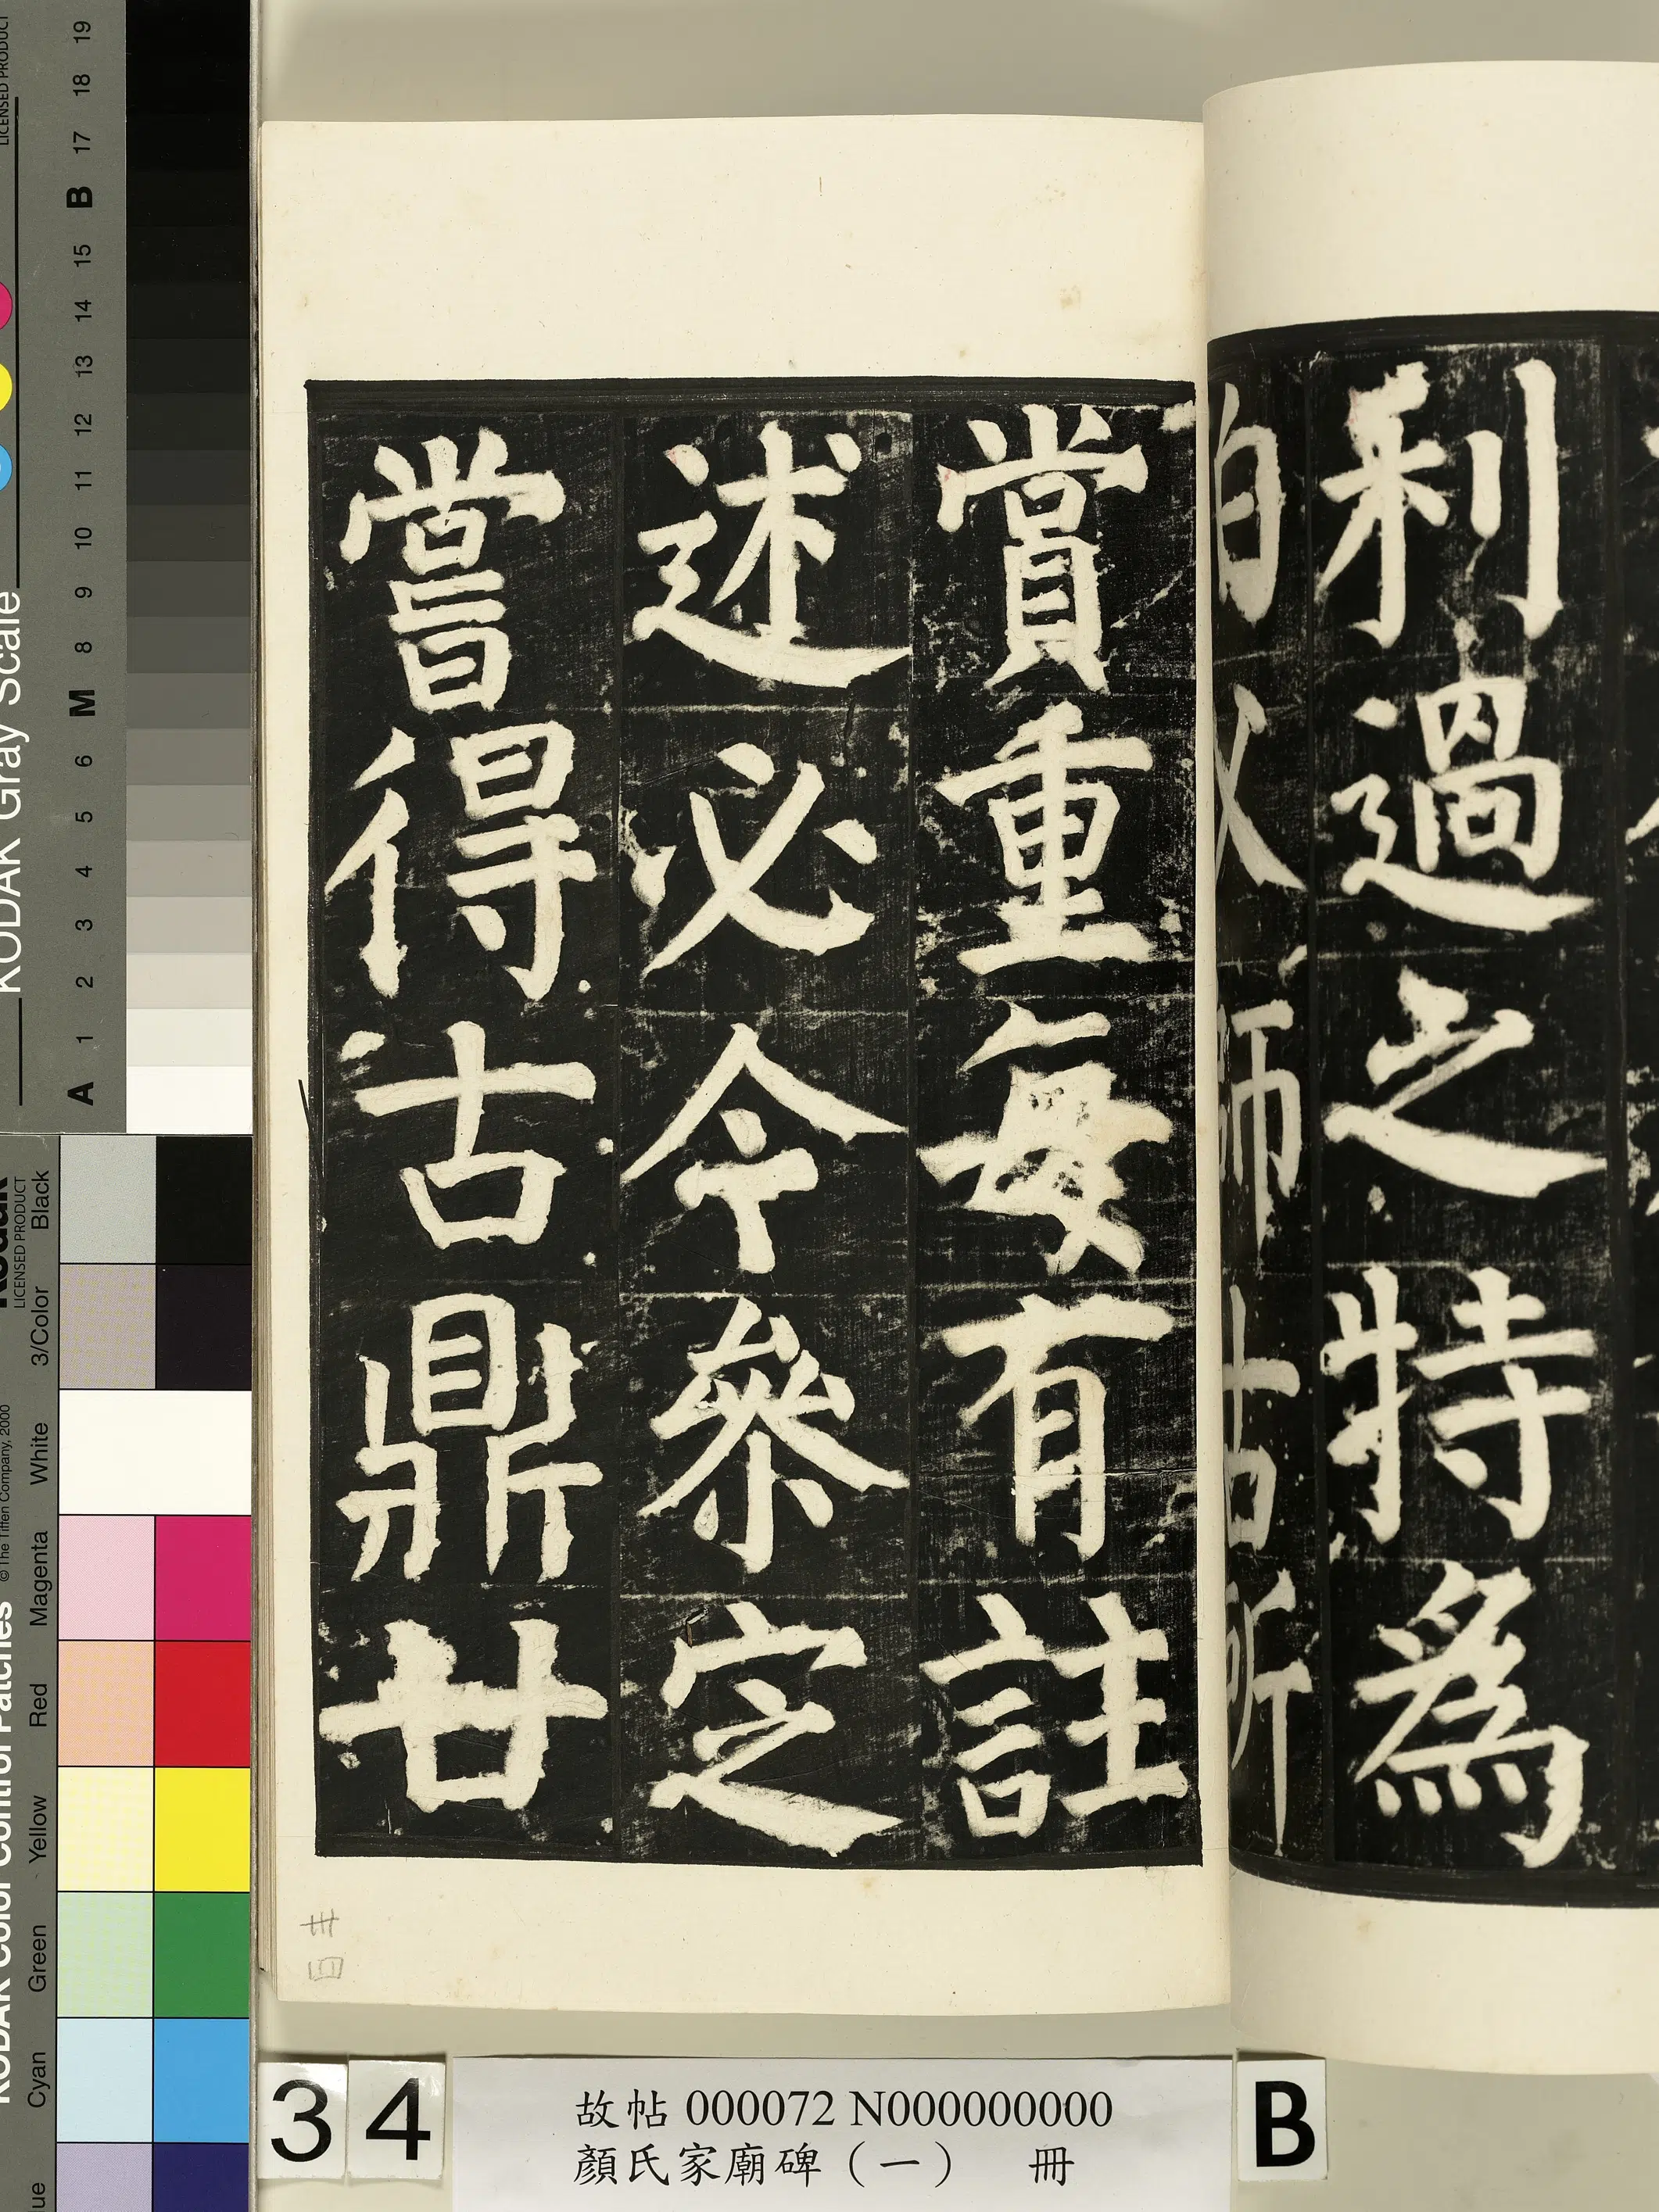 利過之特為
伯父師古所
賞重每有註
述必令參定
嘗得古鼎廿
卅四
34
故帖 000072 N000000000
顏氏家廟碑（一） 冊
B
KODAK Gray Scale
LICENSED PRODUCT
A 1 2 3 4 5 6 M 8 9 10 11 12 13 14 15 B 17 18 19
KODAK Color Control Patches
© The Tiffen Company, 2000
Kodak
LICENSED PRODUCT
Cyan Green Yellow Red Magenta White 3/Color Black